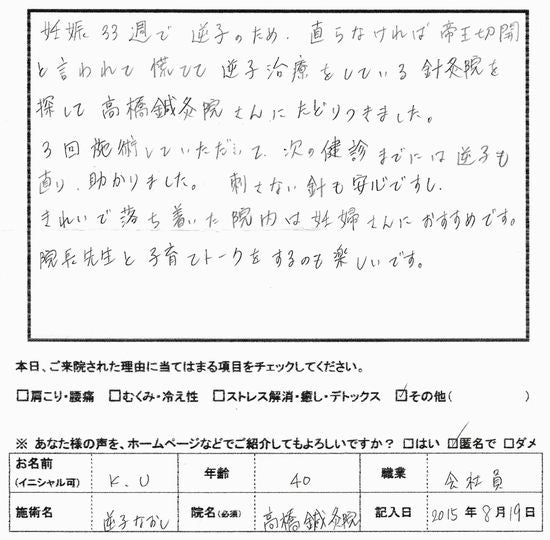 妊娠33週で逆子のため、直らなければ帝王切開
と言われて慌てて逆子治療をしている針灸院を
探して高橋鍼灸院さんにたどりつきました。
3回施術していただいて、次の健診までには逆子も
直り、助かりました。刺さない針も安心ですし、
きれいで落ち着いた院内は妊婦さんにおすすめです。
院長先生と子育てトークをするのも楽しいです。
本日、ご来院された理由に当てはまる項目をチェックしてください。
□肩こり・腰痛 □むくみ・冷え性 □ストレス解消・癒し・デトックス ☑その他( )
※ あなた様の声を、ホームページなどでご紹介してもよろしいですか? □はい ☑匿名で □ダメ
お名前(イニシャル可) K.U 年齢 40 職業 会社員
施術名 逆子なおし 院名(必須) 高橋鍼灸院 記入日 2015年8月19日